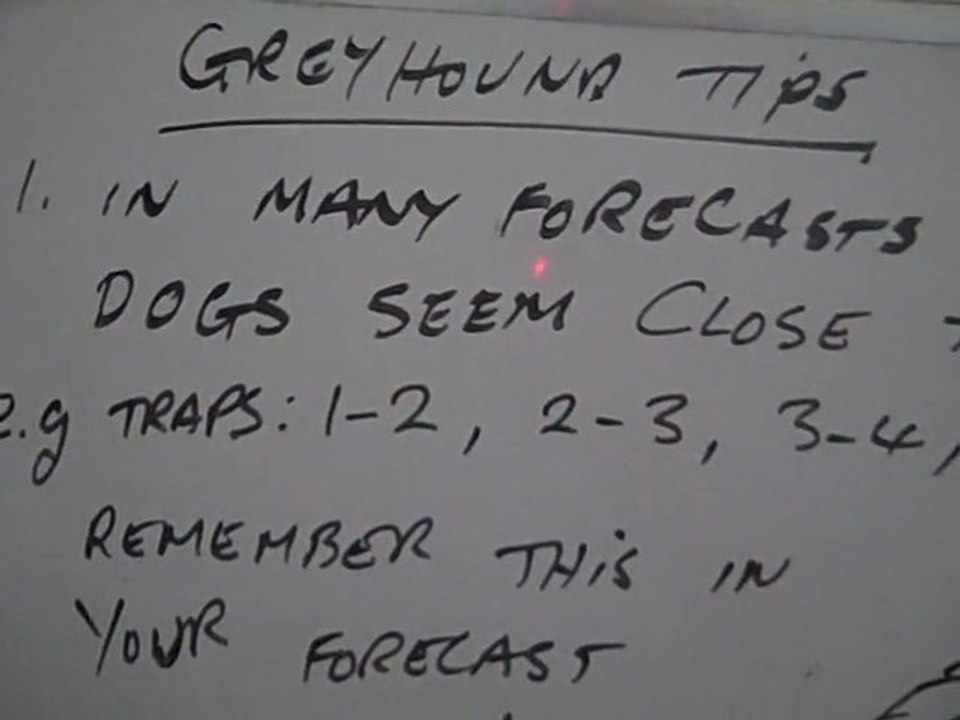 GREYHOUND TIPS
1. IN MANY FORECASTS
DOGS SEEM CLOSE
e.g TRAPS: 1-2, 2-3, 3-4,
REMEMBER THIS IN
YOUR FORECAST